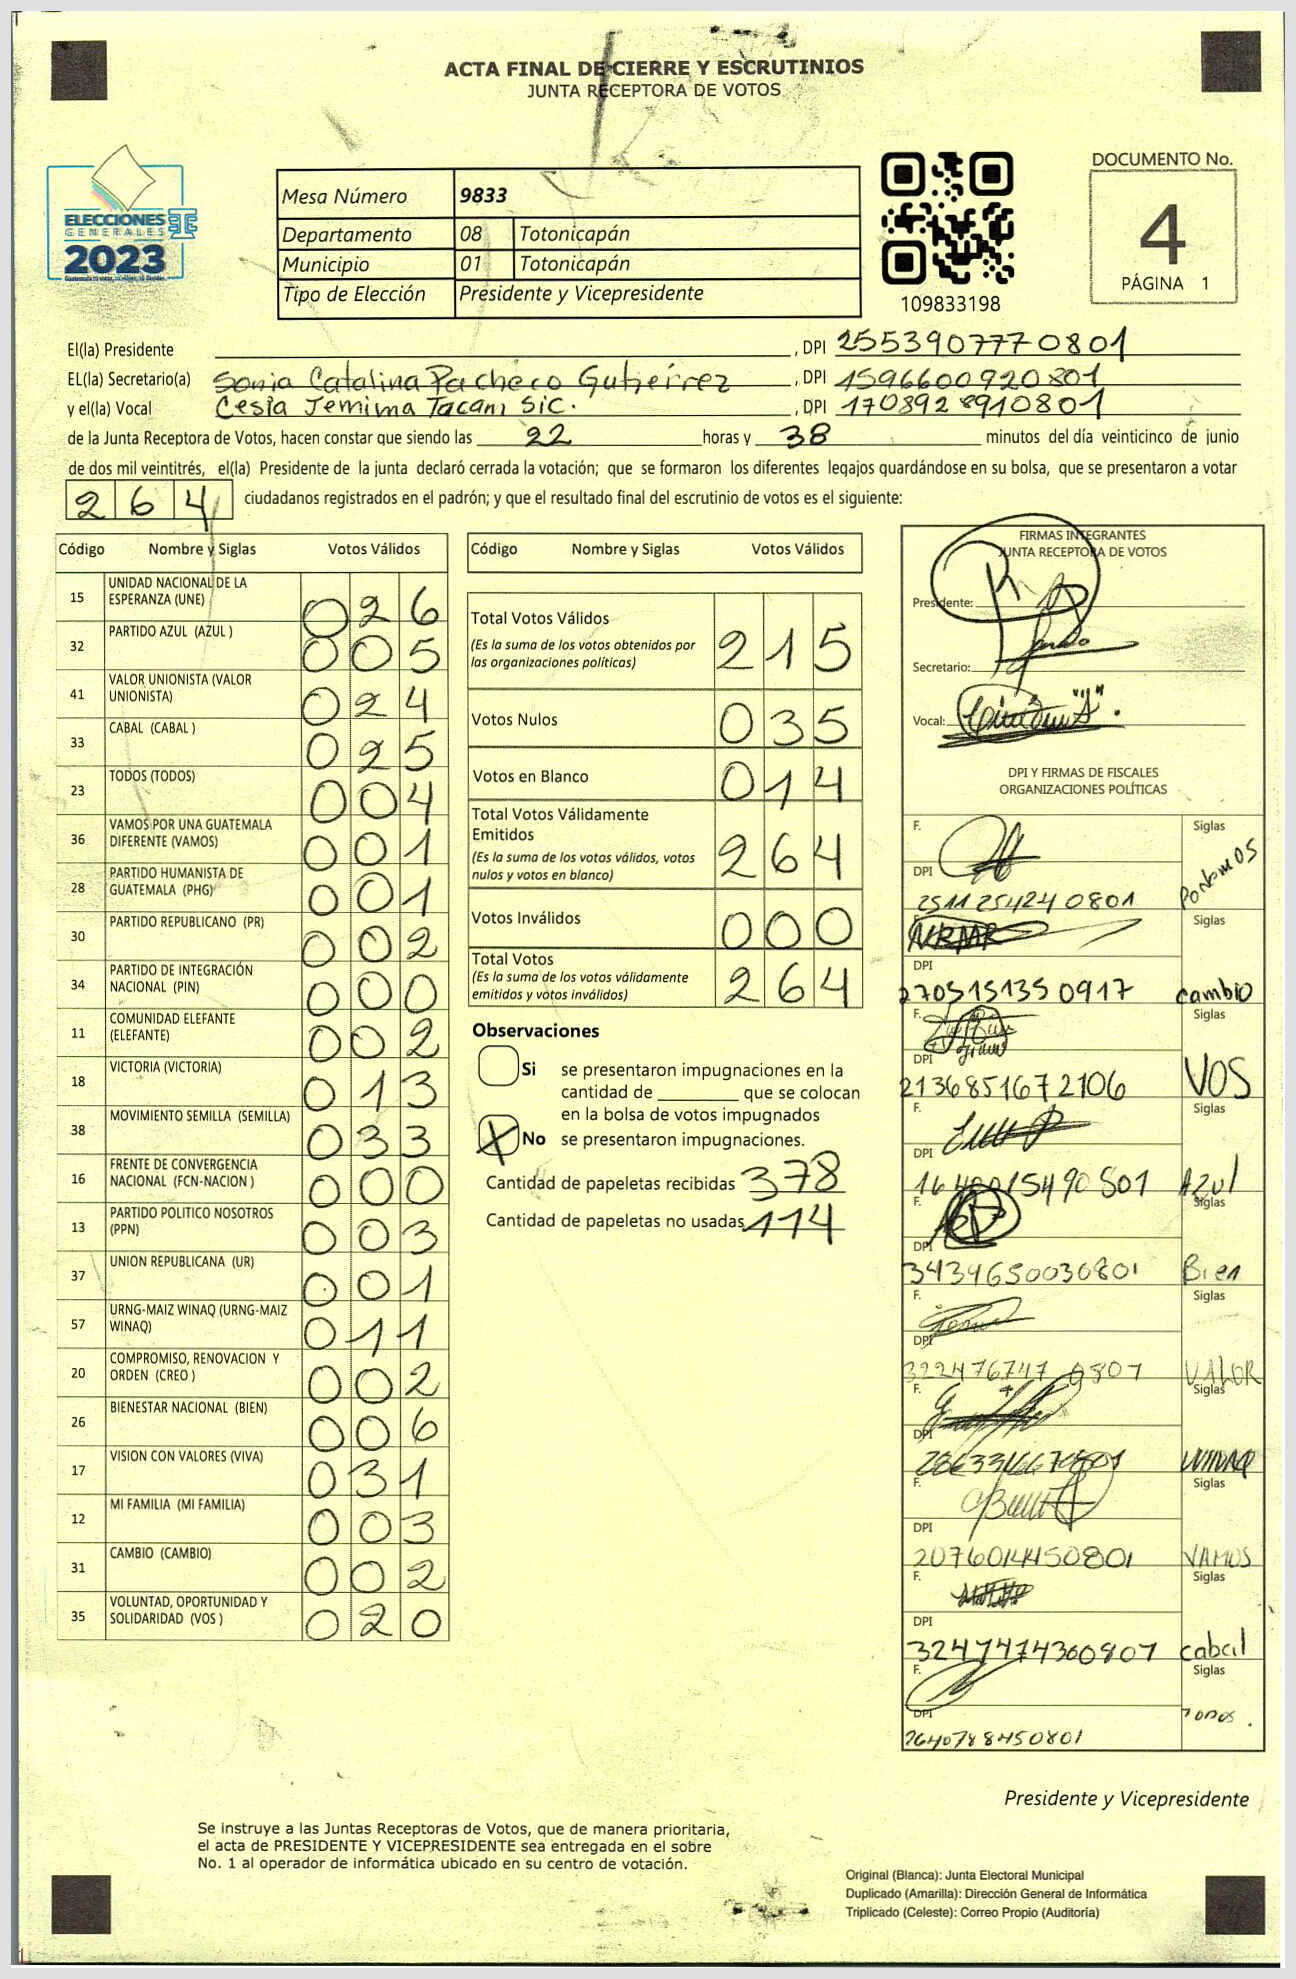 ACTA FINAL DE CIERRE Y ESCRUTINIOS
JUNTA RECEPTORA DE VOTOS
ELECCIONES
GENERALES
2023
Mesa Número 9833
Departamento 08 Totonicapán
Municipio 01 Totonicapán
Tipo de Elección Presidente y Vicepresidente
109833198
DOCUMENTO No.
4
PÁGINA 1
El(la) Presidente , DPI 2553907770801
EL(la) Secretario(a) Sonia Catalina Pacheco Gutierrez , DPI 1596600920801
y el(la) Vocal Cesia Jemima Tacam Sic. , DPI 1708928910801
de la Junta Receptora de Votos, hacen constar que siendo las 22 horas y 38 minutos del día veinticinco de junio
de dos mil veintitrés, el(la) Presidente de la junta declaró cerrada la votación; que se formaron los diferentes legajos quardándose en su bolsa, que se presentaron a votar
264 ciudadanos registrados en el padrón; y que el resultado final del escrutinio de votos es el siguiente:
Código Nombre y Siglas Votos Válidos
15 UNIDAD NACIONAL DE LA ESPERANZA (UNE) 026
32 PARTIDO AZUL (AZUL ) 005
41 VALOR UNIONISTA (VALOR UNIONISTA) 024
33 CABAL (CABAL ) 025
23 TODOS (TODOS) 004
36 VAMOS POR UNA GUATEMALA DIFERENTE (VAMOS) 001
28 PARTIDO HUMANISTA DE GUATEMALA (PHG) 001
30 PARTIDO REPUBLICANO (PR) 002
34 PARTIDO DE INTEGRACIÓN NACIONAL (PIN) 000
11 COMUNIDAD ELEFANTE (ELEFANTE) 002
18 VICTORIA (VICTORIA) 013
38 MOVIMIENTO SEMILLA (SEMILLA) 033
16 FRENTE DE CONVERGENCIA NACIONAL (FCN-NACION ) 000
13 PARTIDO POLITICO NOSOTROS (PPN) 003
37 UNION REPUBLICANA (UR) 001
57 URNG-MAIZ WINAQ (URNG-MAIZ WINAQ) 011
20 COMPROMISO, RENOVACION Y ORDEN (CREO ) 002
26 BIENESTAR NACIONAL (BIEN) 006
17 VISION CON VALORES (VIVA) 031
12 MI FAMILIA (MI FAMILIA) 003
31 CAMBIO (CAMBIO) 002
35 VOLUNTAD, OPORTUNIDAD Y SOLIDARIDAD (VOS ) 020
Código Nombre y Siglas Votos Válidos
Total Votos Válidos 215
(Es la suma de los votos obtenidos por
las organizaciones políticas)
Votos Nulos 035
Votos en Blanco 014
Total Votos Válidamente
Emitidos 264
(Es la suma de los votos válidos, votos
nulos y votos en blanco)
Votos Inválidos 000
Total Votos 264
(Es la suma de los votos válidamente
emitidos y votos inválidos)
Observaciones
Si se presentaron impugnaciones en la
cantidad de ________ que se colocan
en la bolsa de votos impugnados
X No se presentaron impugnaciones.
Cantidad de papeletas recibidas 378
Cantidad de papeletas no usadas 114
FIRMAS INTEGRANTES
JUNTA RECEPTORA DE VOTOS
Presidente:
Secretario:
Vocal:
DPI Y FIRMAS DE FISCALES
ORGANIZACIONES POLÍTICAS
F. Siglas
DPI
2511254240801
F. Siglas
DPI
2705151350917 cambio
F. Siglas
DPI
2136851672106 VOS
F. Siglas
DPI
Azul
F. Siglas
DPI
3439650030801 Bien
F. Siglas
DPI
322476747 0807 VALOR
F. Siglas
DPI
WINAQ
F. Siglas
DPI
2076014450801 VAMOS
F. Siglas
DPI
3247474360807 cabal
F. Siglas
DPI
2640788450801 Todos.
Presidente y Vicepresidente
Se instruye a las Juntas Receptoras de Votos, que de manera prioritaria,
el acta de PRESIDENTE Y VICEPRESIDENTE sea entregada en el sobre
No. 1 al operador de informática ubicado en su centro de votación.
Original (Blanca): Junta Electoral Municipal
Duplicado (Amarilla): Dirección General de Informática
Triplicado (Celeste): Correo Propio (Auditoría)